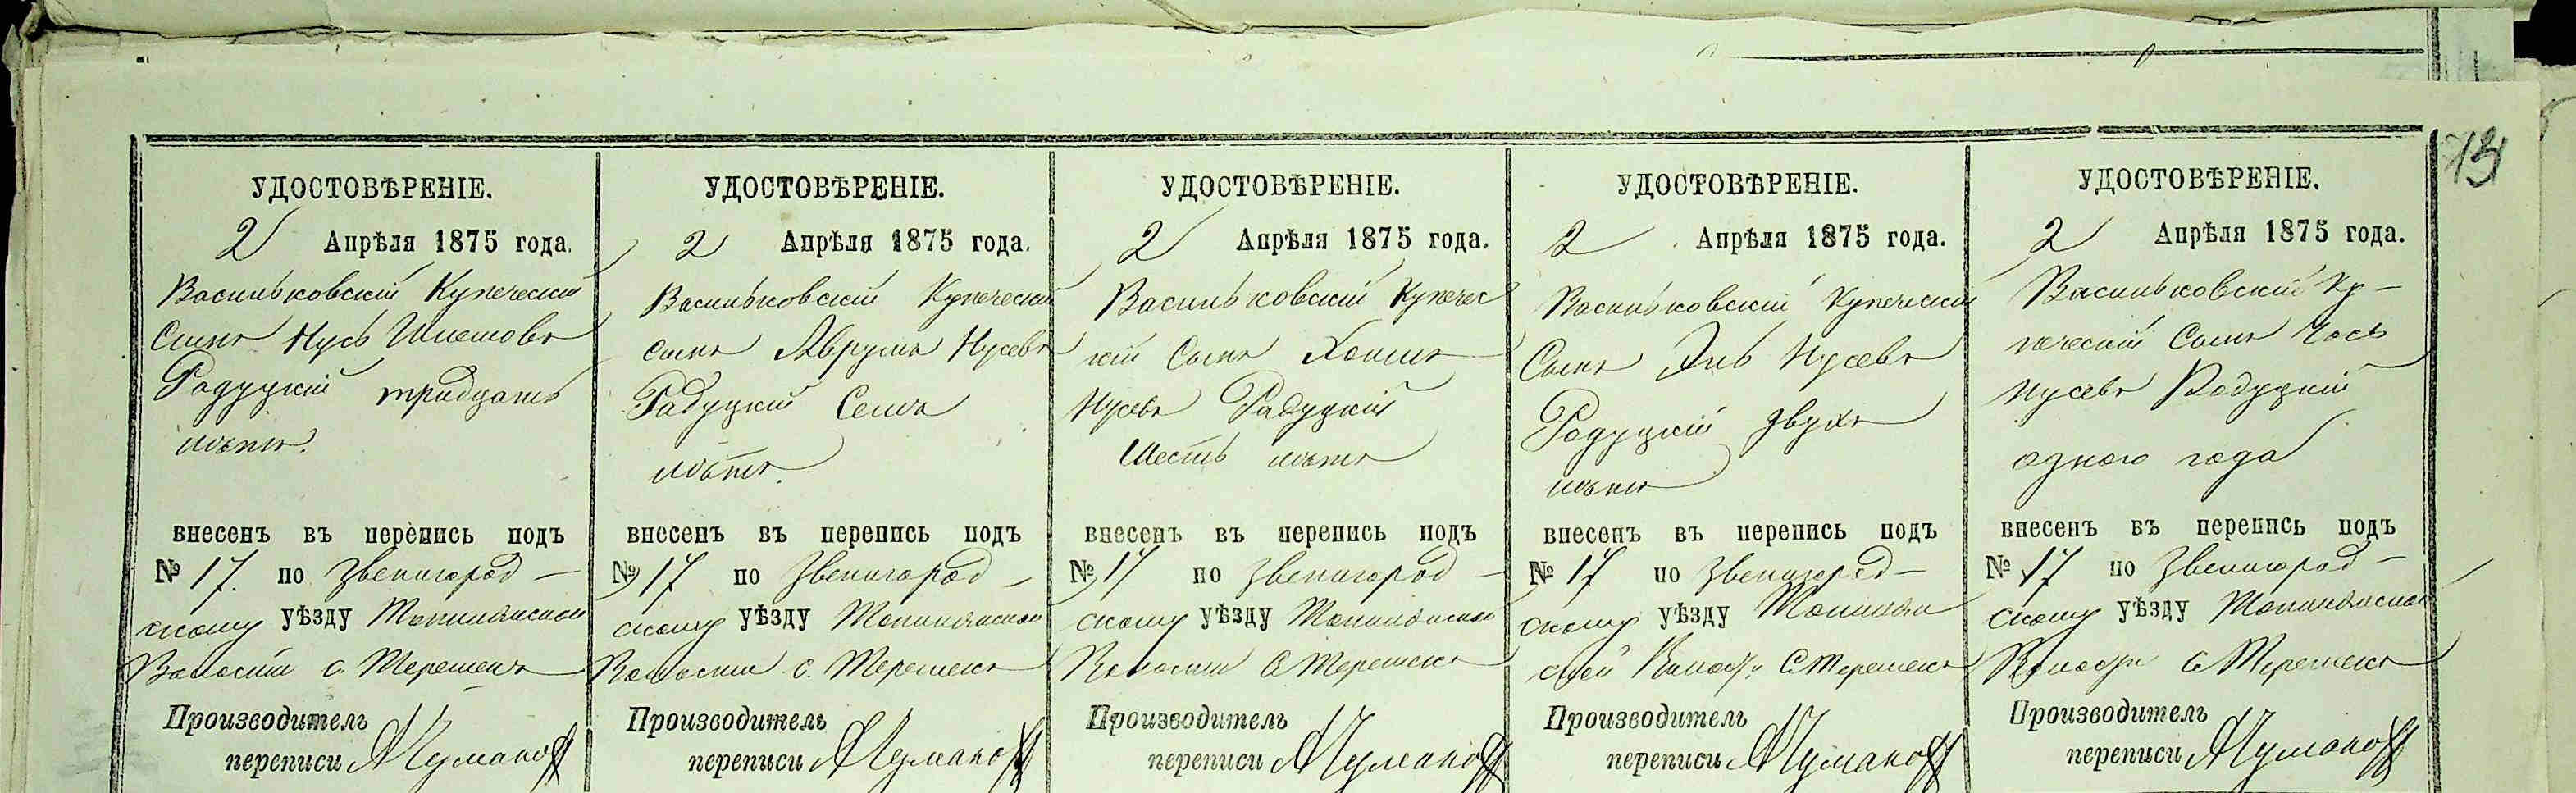 13
УДОСТОВѢРЕНІЕ.
2 Апрѣля 1875 года.
Васильковскій Купеческій
Сынъ Нусь Шлемовъ
Радуцкій тридцать
лѣтъ.
внесенъ въ перепись подъ
№ 17. по Звенигород-
скому уѣзду
Волости с.
Производитель
переписи
УДОСТОВѢРЕНІЕ.
2 Апрѣля 1875 года.
Васильковскій Купеческій
сынъ Аврумъ Нусевъ
Радуцкій Семь
лѣтъ.
внесенъ въ перепись подъ
№ 17 по Звенигород-
скому уѣзду
Волости с.
Производитель
переписи
УДОСТОВѢРЕНІЕ.
2 Апрѣля 1875 года.
Васильковскій Купечес
кій Сынъ
Нусевъ Радуцкій
Шесть лѣтъ
внесенъ въ перепись подъ
№ 17 по Звенигород-
скому уѣзду
Волости с
Производитель
переписи
УДОСТОВѢРЕНІЕ.
2 Апрѣля 1875 года.
Васильковскій Купеческій
Сынъ Эль Нусевъ
Радуцкій двухъ
лѣтъ
внесенъ въ перепись подъ
№ 17 по Звенигород-
скому уѣзду
ской с
Производитель
переписи
УДОСТОВѢРЕНІЕ.
2 Апрѣля 1875 года.
Васильковскій Ку-
печескій Сынъ
Нусевъ Радуцкій
одного года
внесенъ въ перепись подъ
№ 17 по Звенигород-
скому уѣзду
с
Производитель
переписи